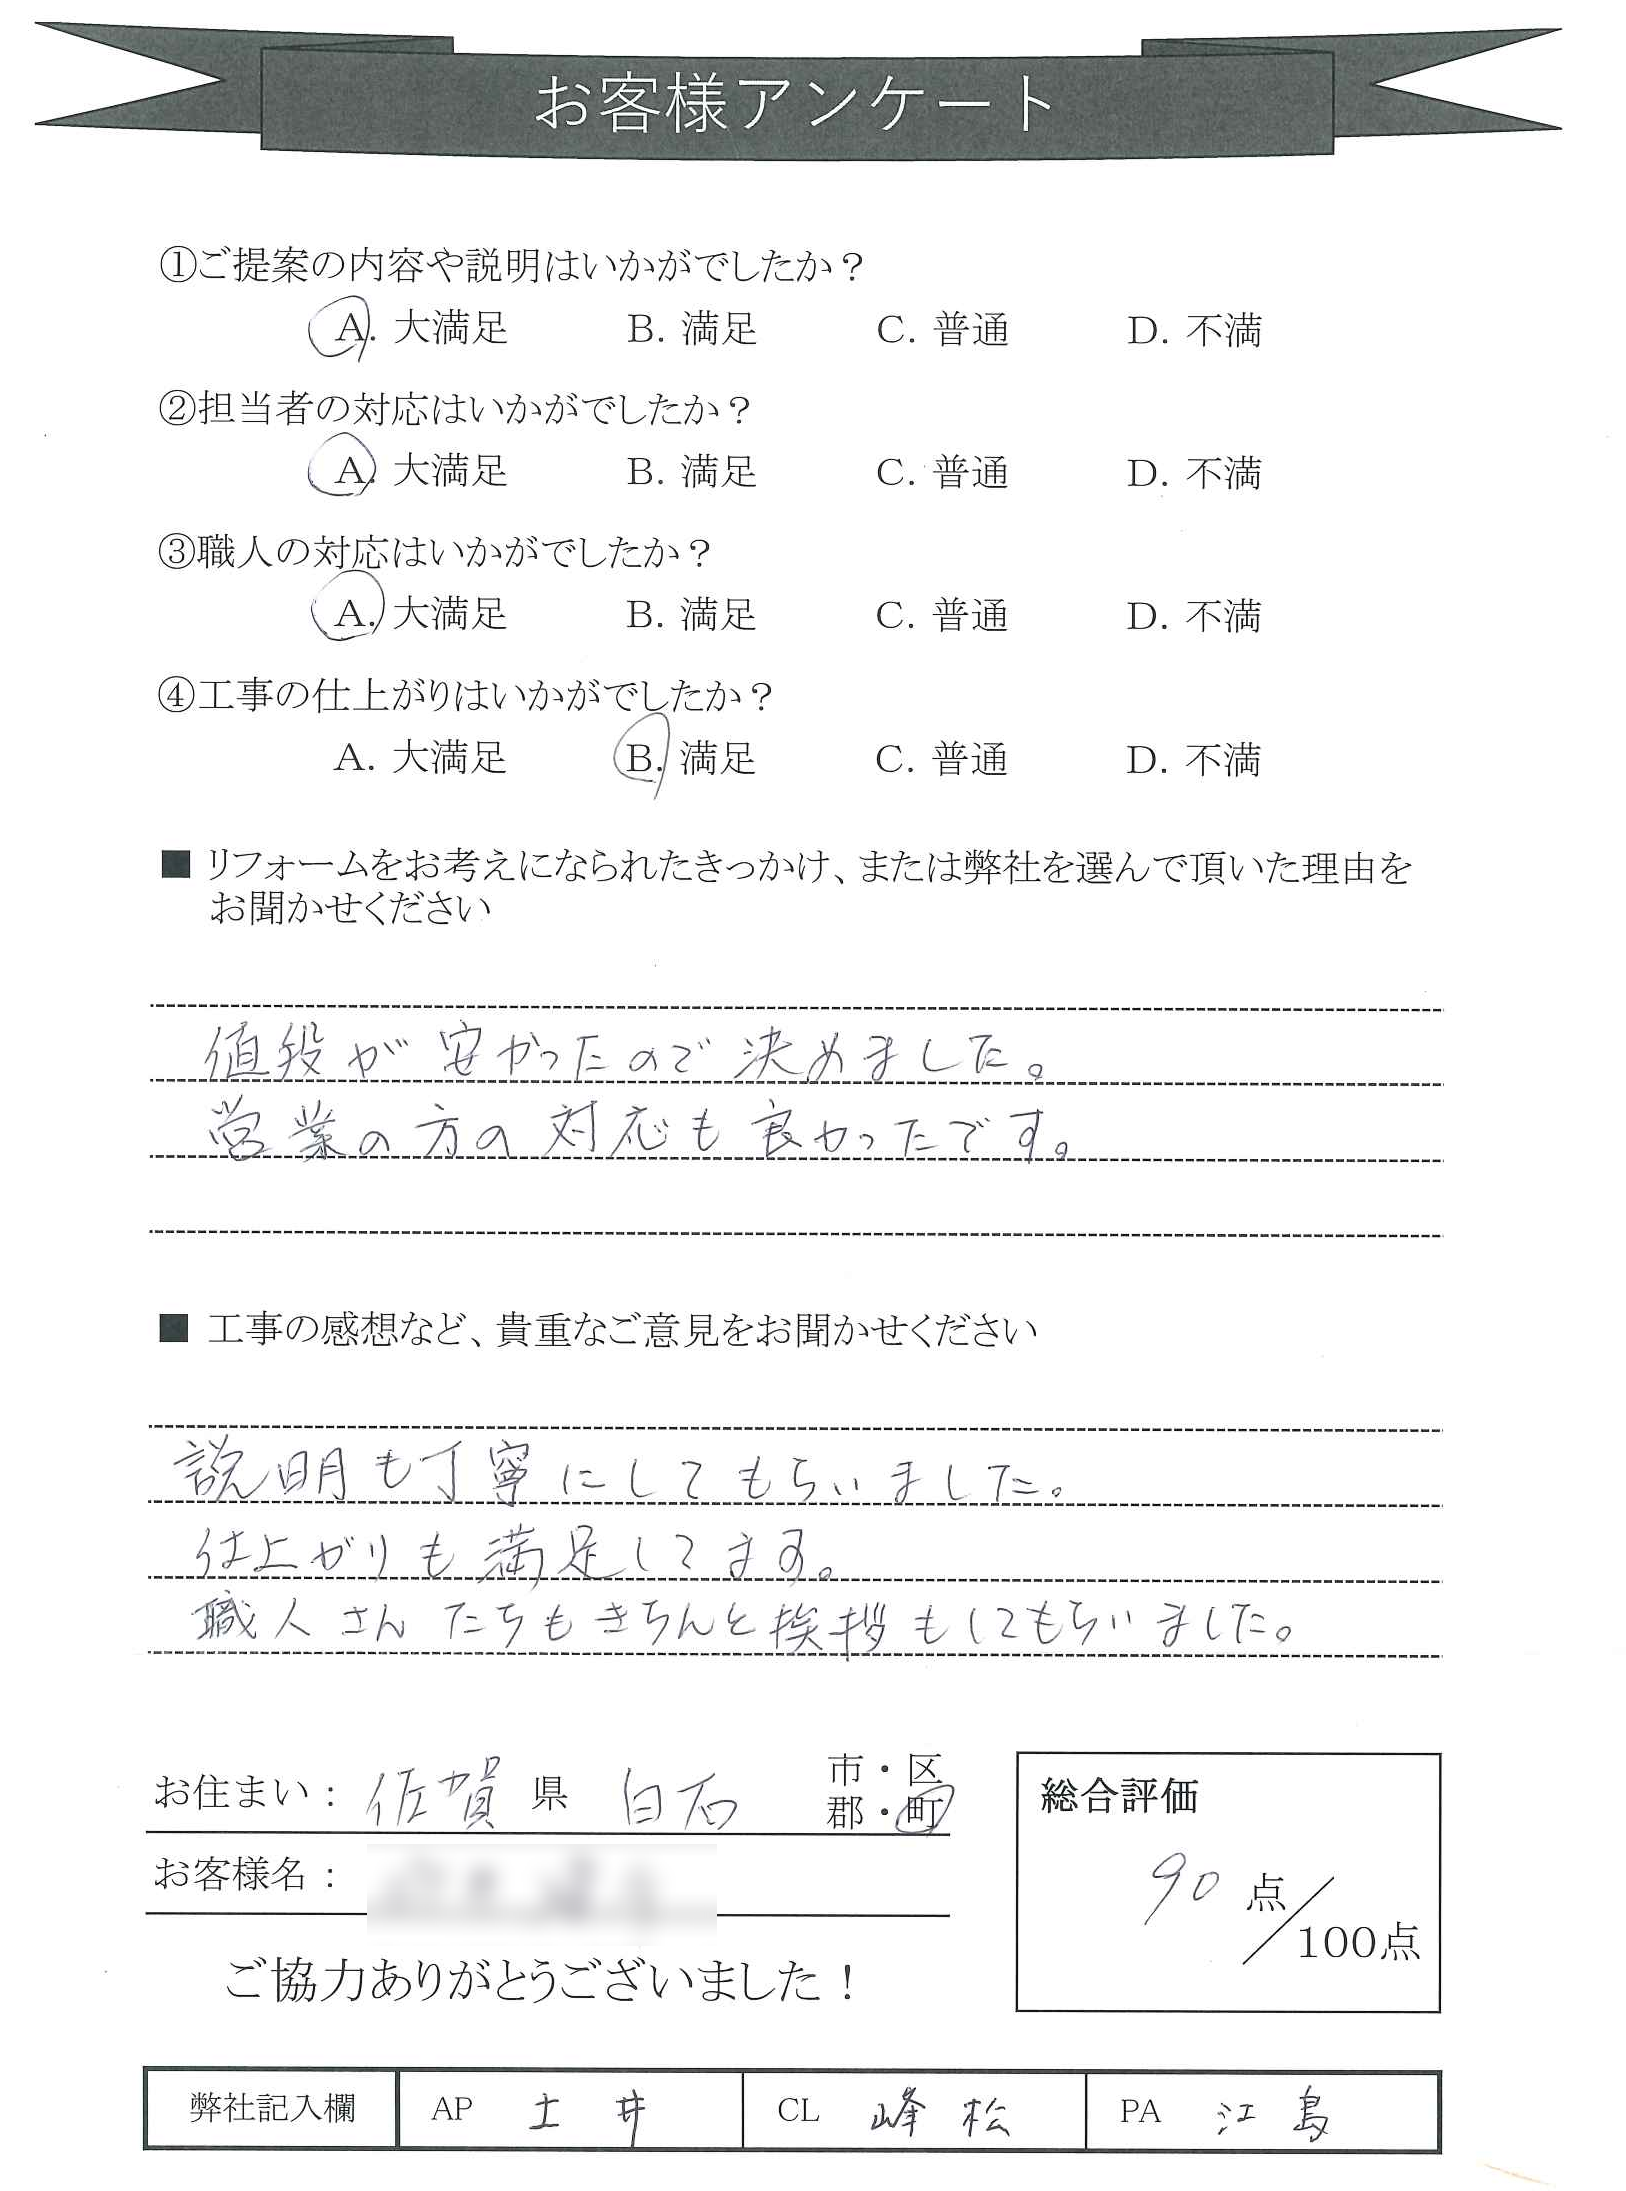 お客様アンケート
①ご提案の内容や説明はいかがでしたか？
A. 大満足 B. 満足 C. 普通 D. 不満
②担当者の対応はいかがでしたか？
A. 大満足 B. 満足 C. 普通 D. 不満
③職人の対応はいかがでしたか？
A. 大満足 B. 満足 C. 普通 D. 不満
④工事の仕上がりはいかがでしたか？
A. 大満足 B. 満足 C. 普通 D. 不満
■ リフォームをお考えになられたきっかけ、または弊社を選んで頂いた理由を
お聞かせください
値段が安かったので決めました。
営業の方の対応も良かったです。
■ 工事の感想など、貴重なご意見をお聞かせください
説明も丁寧にしてもらいました。
仕上がりも満足してます。
職人さんたちもきちんと挨拶もしてもらいました。
お住まい： 佐賀 県 白石 市・区
郡・町
お客様名：
総合評価
90 点／100点
ご協力ありがとうございました！
弊社記入欄 AP 土井 CL 峰松 PA 江島